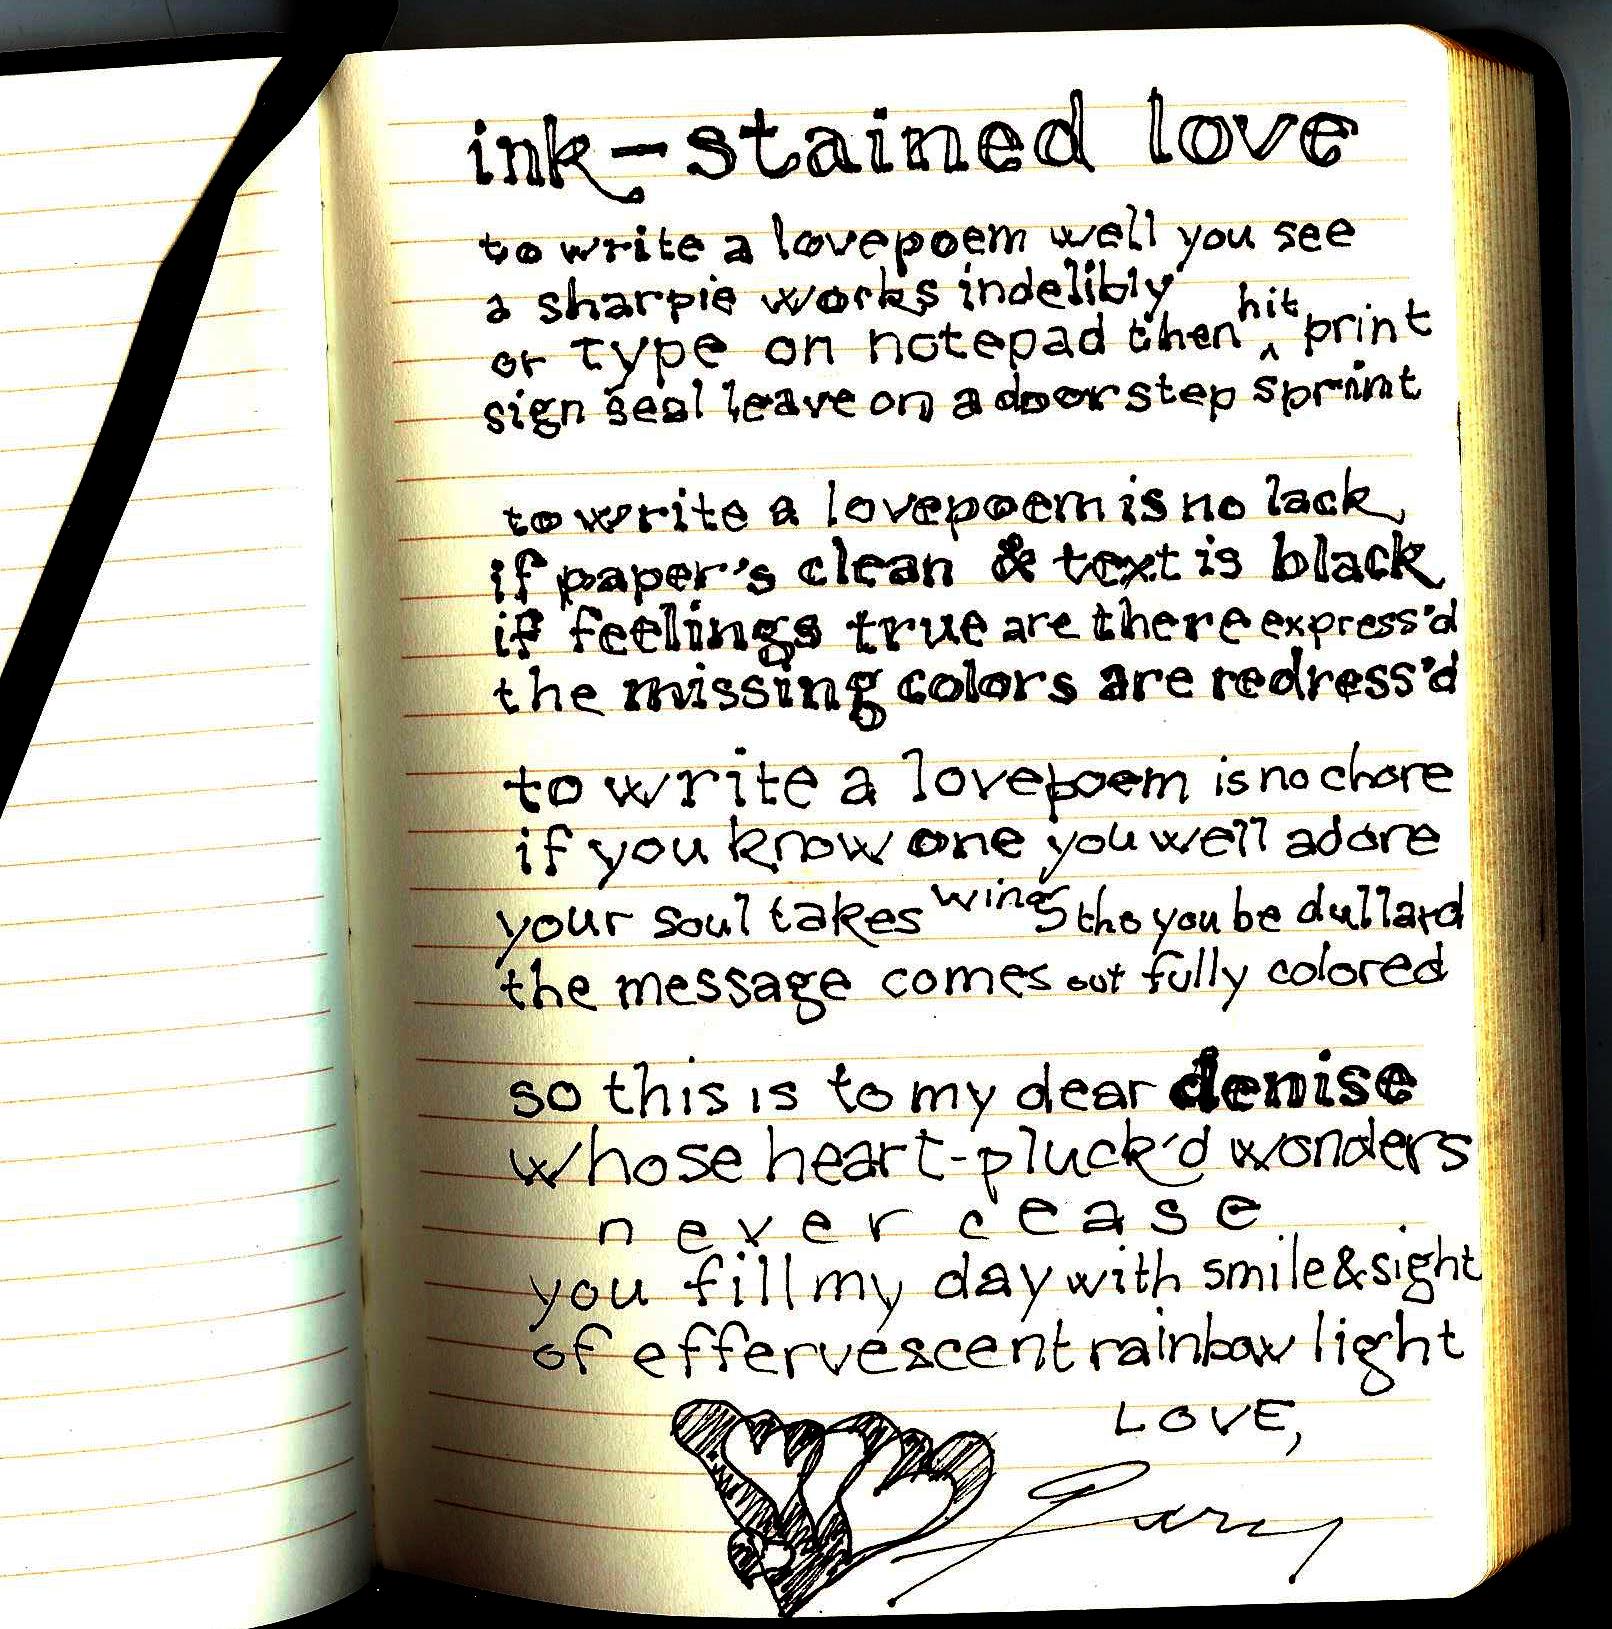 ink-stained love
to write a lovepoem well you see
a sharpie works indelibly
or type on notepad then hit print
sign seal leave on a doorstep sprint
to write a lovepoem is no lack
if paper's clean & text is black
if feelings true are there express'd
the missing colors are redress'd
to write a lovepoem is no chore
if you know one you well adore
your soul takes wings tho you be dullard
the message comes out fully colored
so this is to my dear denise
whose heart-pluck'd wonders
never cease
you fill my day with smile & sight
of effervescent rainbow light
LOVE,